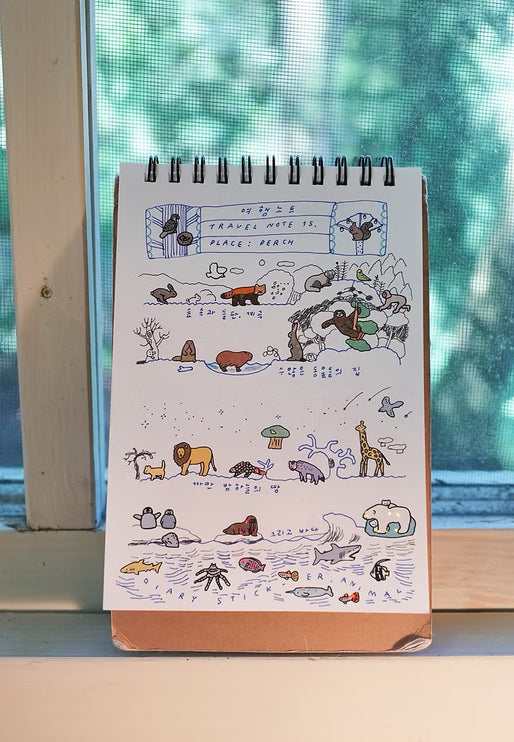 여행노트
TRAVEL NOTE 15.
PLACE: PERCH
숲속과 들판, 계곡
수많은 동물들의 집
까만 밤하늘의 땅
그리고 바다
DIARY STICKER: ANIMAL